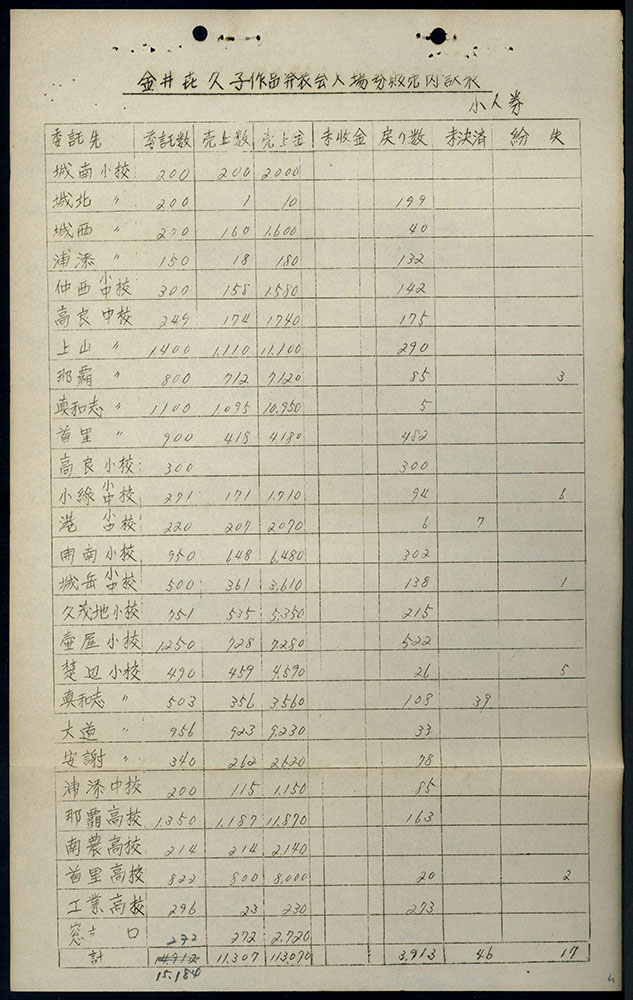 金井喜久子作品発表会入場券販売内訳表
小人券
委託先 委託数 売上数 売上金 未収金 戻り数 未決済 紛失
城南小校 200 200 2000
城北 〃 200 1 10 199
城西 〃 200 160 1,600 40
浦添 〃 150 18 180 132
仲西小中校 300 158 1,580 142
高良中校 249 174 1,740 175
上山 〃 1,400 1,110 11,100 290
那覇 〃 800 712 7,120 85 3
真和志 〃 1100 1,095 10,950 5
首里 〃 900 418 4,180 482
高良小校 300 300
小綠小中校 271 171 1,710 94 6
港 小中校 220 207 2070 6 7
開南小校 950 648 6,480 302
城岳小中校 500 361 3,610 138 1
久茂地小校 751 535 5,350 215
壺屋小校 1,250 728 7,280 522
楚辺小校 490 459 4,590 26 5
真和志 〃 503 356 3,560 108 39
大道 〃 956 923 9,230 33
安謝 〃 340 262 2,620 78
浦添中校 200 115 1,150 85
那覇高校 1,350 1,187 11,870 163
南農高校 214 214 2,140
首里高校 822 800 8,000 20 2
工業高校 296 23 230 273
窓口 272 272 2,720
計 14,912 11,307 113,070 3,913 46 17
15,184